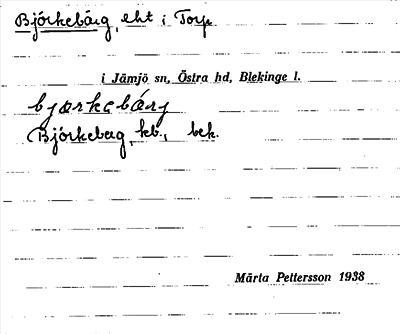 Björkebärg, eht i Torp
i Jämjö sn, Östra hd, Blekinge l.
bjørkebärj
Björkeberg, kb., bek.
Märta Pettersson 1938